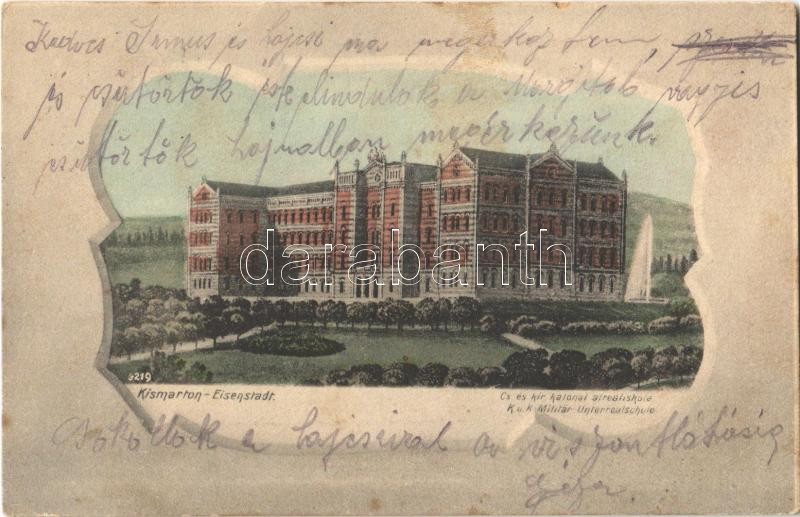 Kedves és Lajcsi ma megérkeztem,
és csütörtök este elindulok a vagyis
csütörtök hajnalban megérkezünk.
darabanth
3219
Kismarton - Eisenstadt.
Cs. és kir. katonai alreáliskola
K. u. k. Militär-Unterrealschule
Csókollak a Lajcsival a viszontlátásig
Géza.